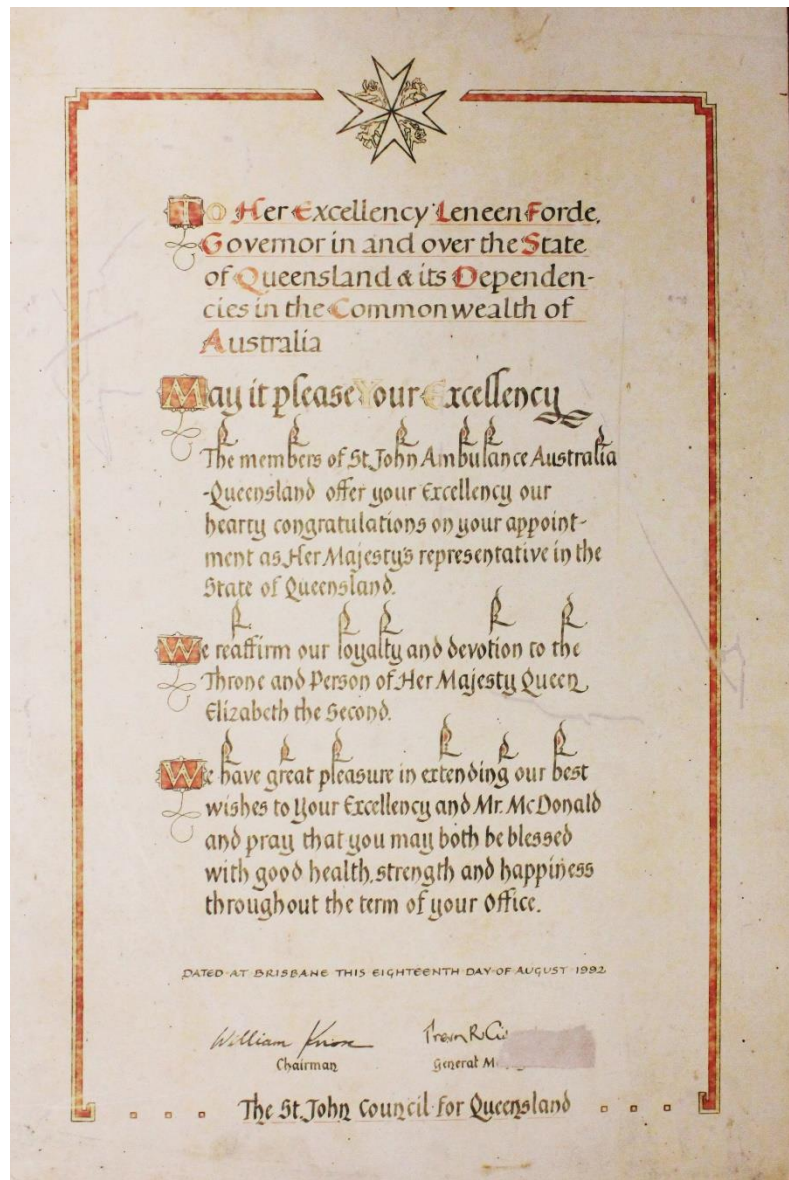 To Her Excellency Leneen Forde,
Governor in and over the State
of Queensland & its Dependen-
cies in the Commonwealth of
Australia
May it please Your Excellency
The members of St. John Ambulance Australia
-Queensland offer your Excellency our
hearty congratulations on your appoint-
ment as Her Majesty's representative in the
State of Queensland.
We reaffirm our loyalty and devotion to the
Throne and Person of Her Majesty Queen
Elizabeth the Second.
We have great pleasure in extending our best
wishes to Your Excellency and Mr. McDonald
and pray that you may both be blessed
with good health, strength and happiness
throughout the term of your Office.
DATED AT BRISBANE THIS EIGHTEENTH DAY OF AUGUST 1992
William Knox
Chairman
General
The St. John Council for Queensland